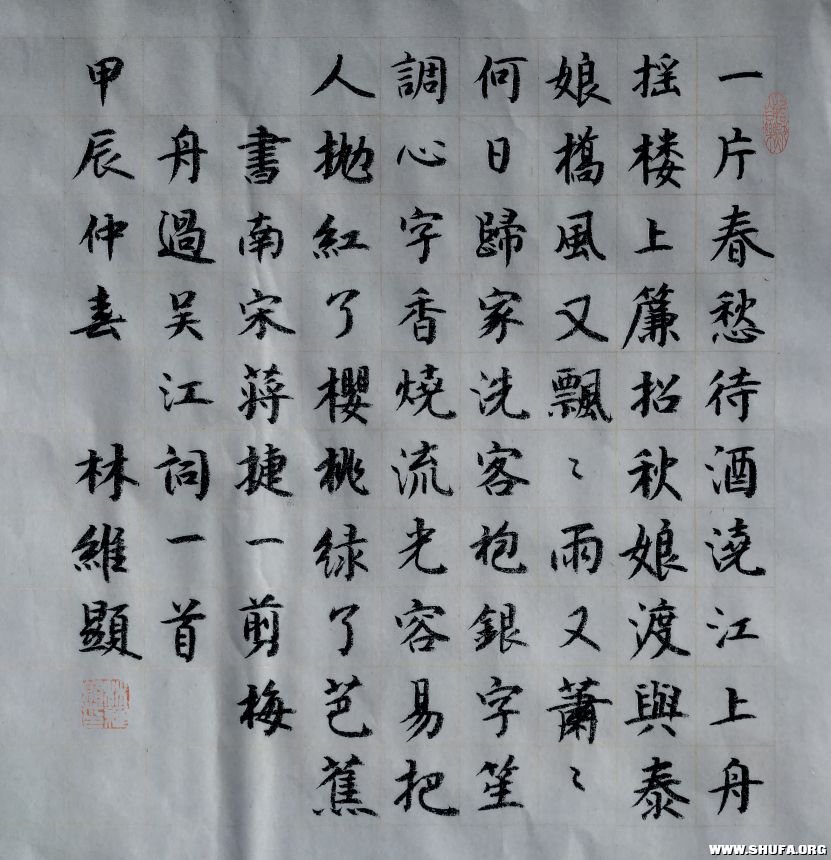 一片春愁待酒澆江上舟
摇楼上簾招秋娘渡與泰
娘橋風又飄〻雨又蕭〻
何日歸家洗客袍銀字笙
調心字香燒流光容易把
人拋紅了櫻桃绿了芭蕉
書南宋蒋捷一剪梅
舟過吴江詞一首
甲辰仲春 林維顯
WWW.SHUFA.ORG